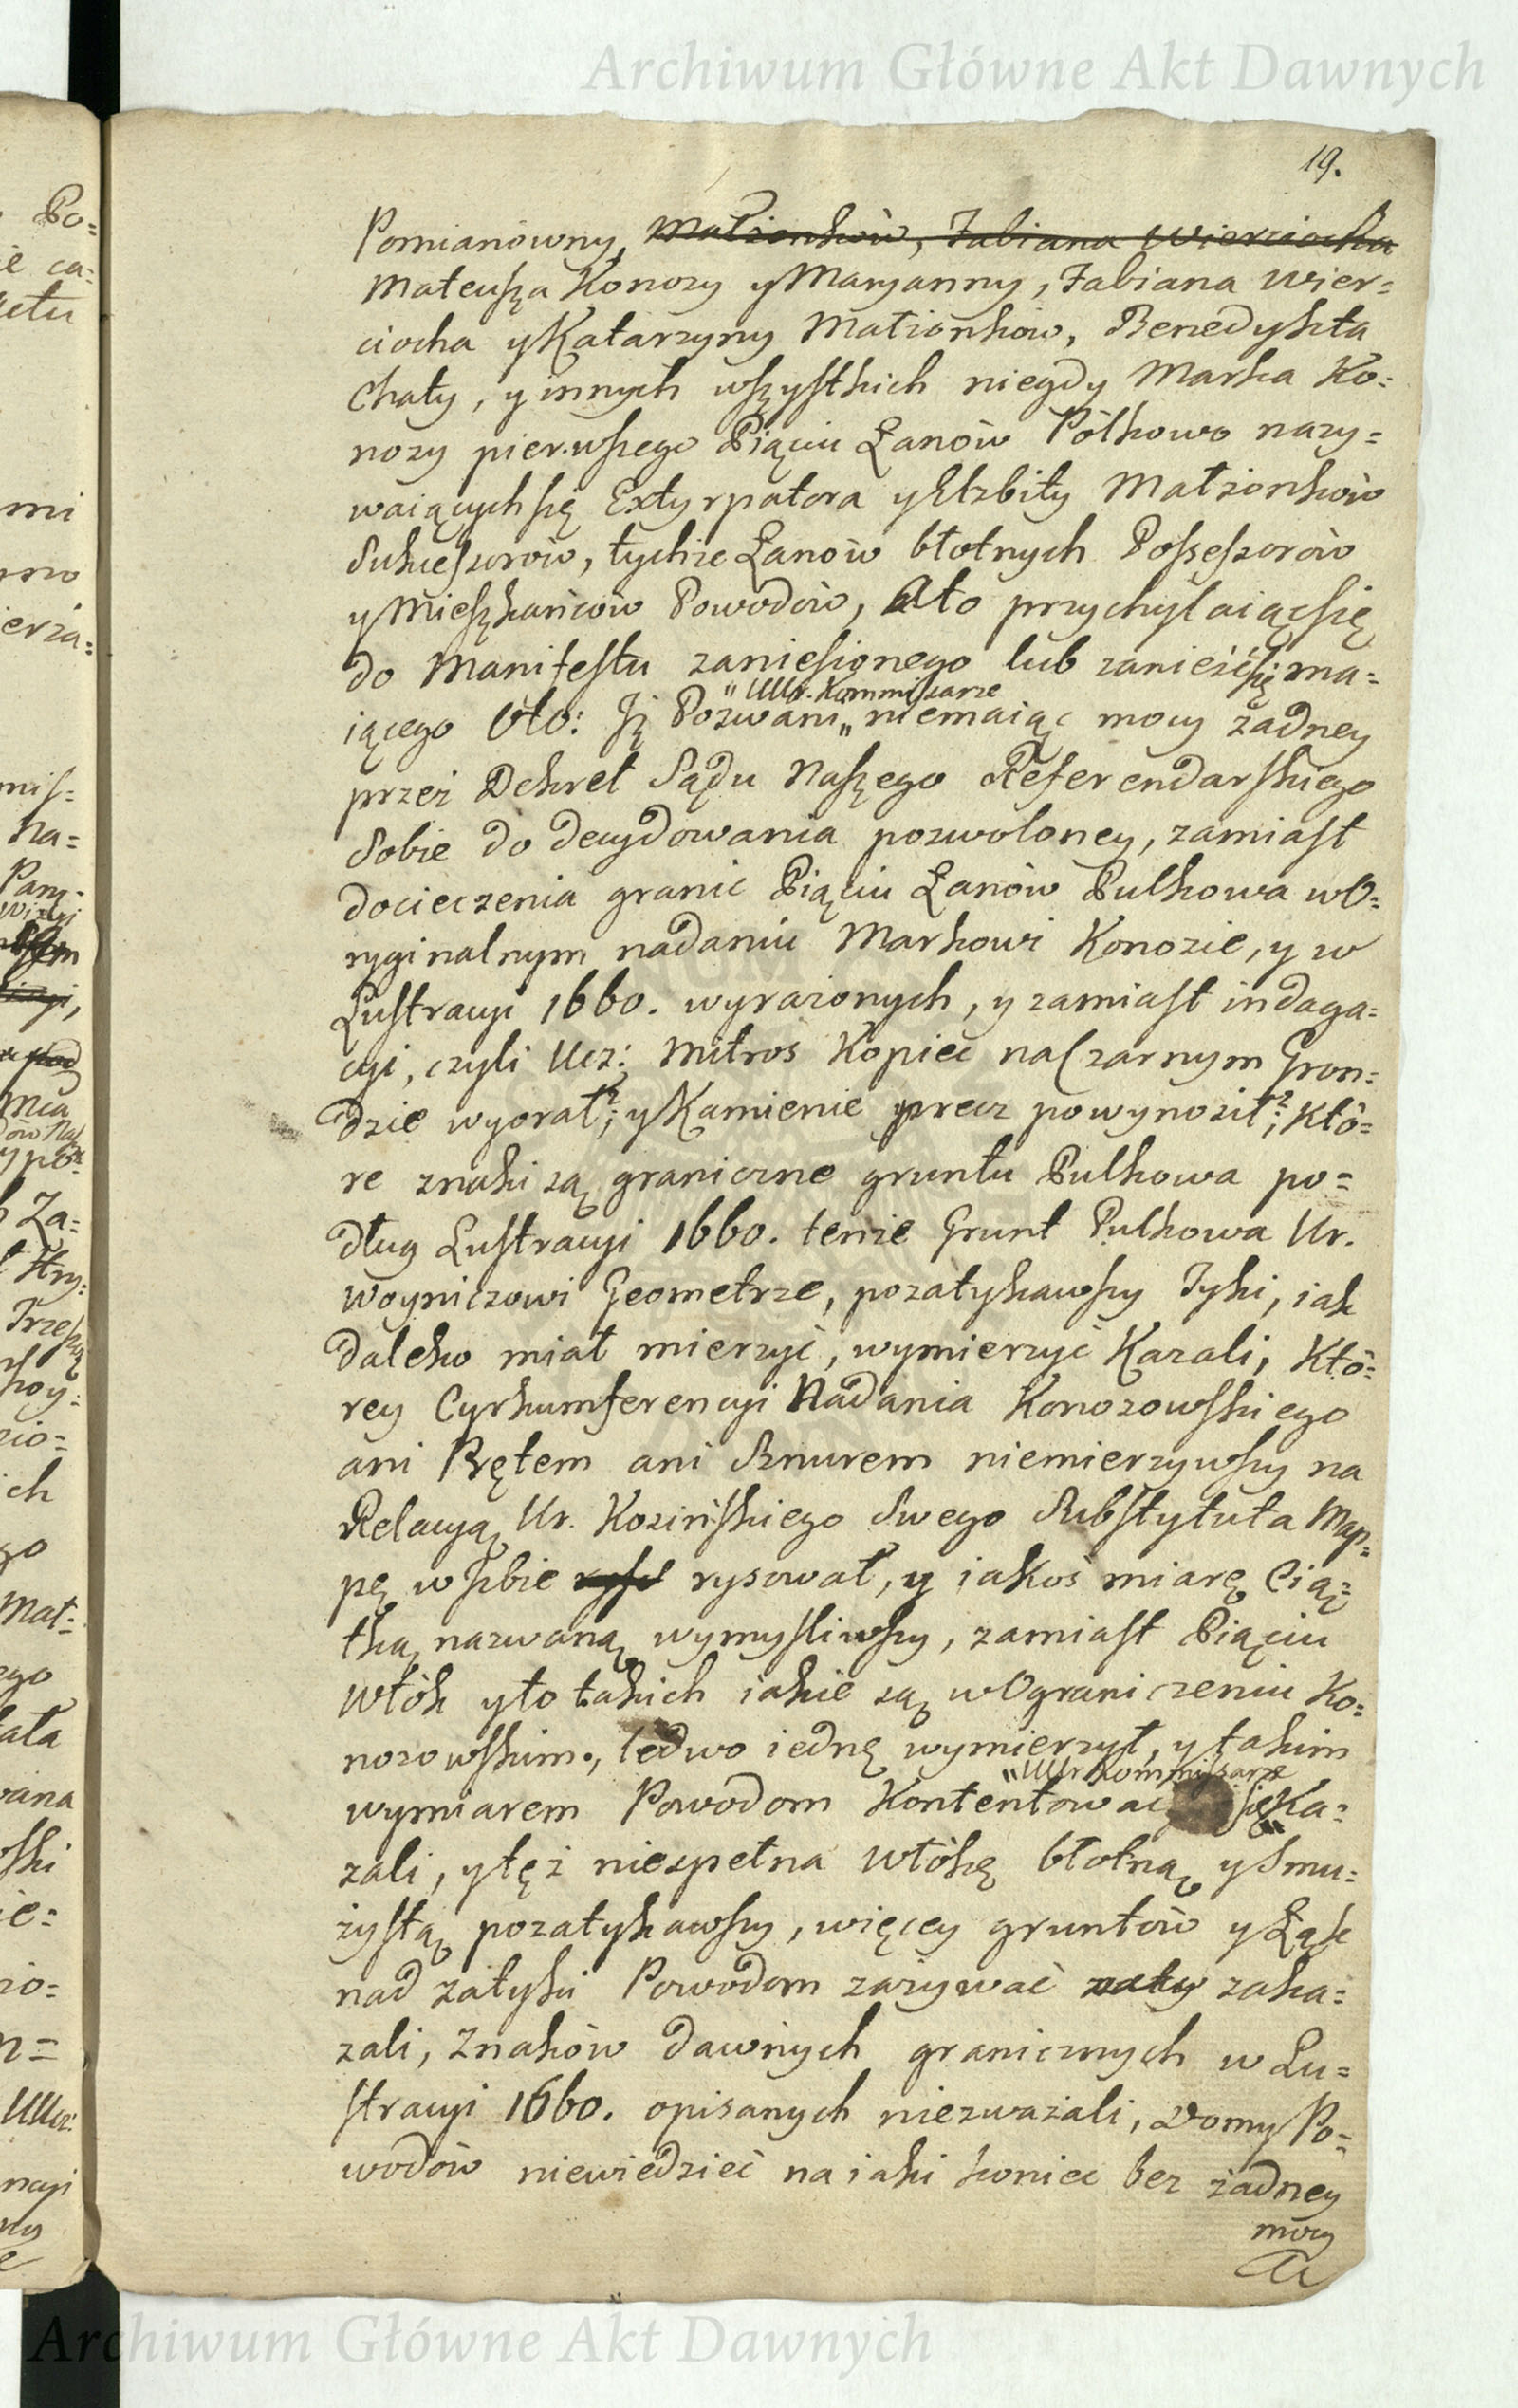 Archiwum Główne Akt Dawnych
19.
Pomianówny, Małżonków, Fabiana Wierciocha
Mateusza Konozy y Maryanny, Fabiana Wier=
ciocha y Katarzyny Małżonków, Benedykta
Chały, y innych wszystkich niegdy Marka Ko=
nozy pierwszego Piąciu Łanów Pólkowo nazy=
waiących się Extyrpatora y Elzbity Małżonków
Sukcessorów, tychże Łanów błotnych Possessorów
y Mieszkańców Powodów, Ato przychylaiąc się
do Manifestu zaniesionego lub zanieść się ma=
„ UUr. Kommissarze
iącego Oto: Iż Pozwani „ niemaiąc mocy żadney
przez Dekret Sądu Naszego Referendarskiego
Sobie do decydowania pozwoloney, zamiast
docieczenia granic Piąciu Łanów Pulkowa w O=
ryginalnym nadaniu Markowi Konozie, y w
Lustracyi 1660. wyrażonych, y zamiast indaga=
cyi, czyli Ucz: Mitroś Kopiec na Czarnym Gron=
dzie wyorał?; y Kamienie precz powynosił?; Któ=
re znaki są graniczne gruntu Pulkowa po=
dług Lustracyi 1660. tenże Grunt Pulkowa Ur.
Woyniczowi Geometrze, pozatykawszy Tyki, iak
daleko miał mierzyć, wymierzyć Kazali, Któ=
rey Cyrkumferencyi Nadania Konozowskiego
ani Prętem ani Sznurem niemierzywszy na
Relacyą Ur. Kozińskiego Swego Substytuta Map=
pę w Izbie rysował, y iakoś miarę Cią=
tką nazwaną wymysliwszy, zamiast Piąciu
Włók y to takich iakie są w Ograniczeniu Ko=
nozowskim, ledwo iednę wymierzył, y takim
„ UUr Kommissarze
wymiarem Powodom Kontentować się „ Ka=
zali, y tęż niezpełna Włókę błotną y Smu=
żystą pozatykawszy, więcey gruntów y Łąk
nad Zatyki Powodom zażywać zaka=
zali, Znaków dawnych granicznych w Lu=
stracyi 1660. opisanych niezważali, Domy Po=
wodów niewiedzieć na iaki koniec bez żadney
mocy
Archiwum Główne Akt Dawnych